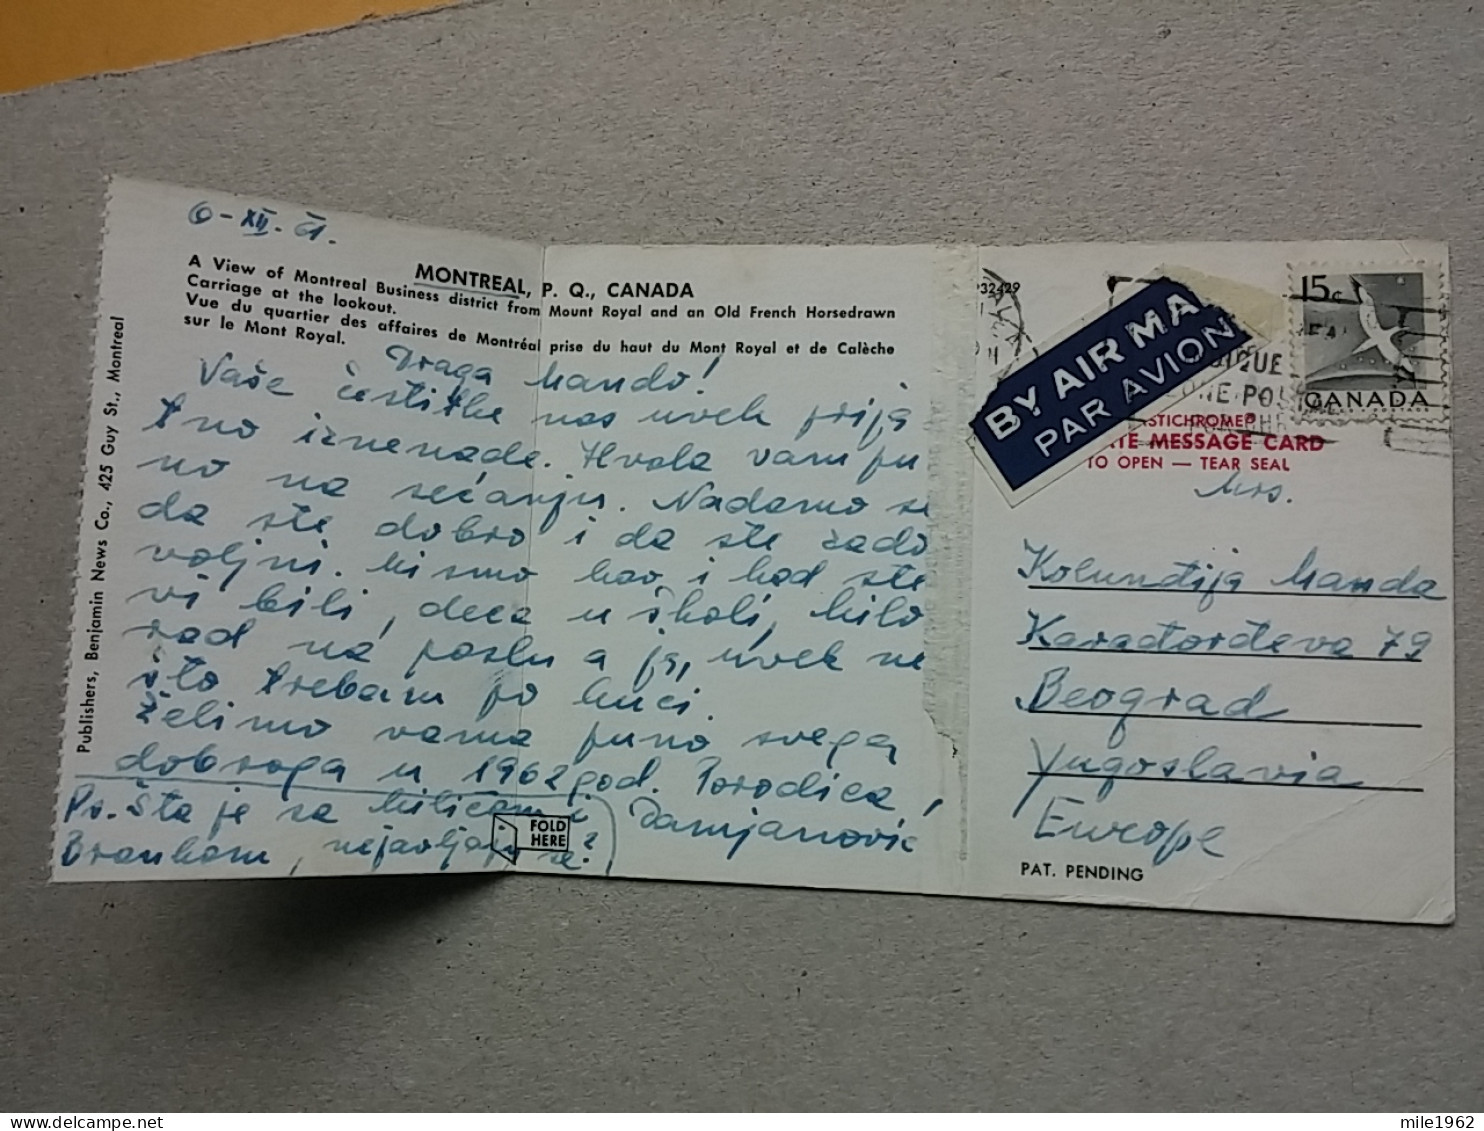 6-XII. 61.
MONTREAL, P. Q., CANADA
A View of Montreal Business district from Mount Royal and an Old French Horsedrawn
Carriage at the lookout.
Vue du quartier des affaires de Montréal prise du haut du Mont Royal et de Calèche
sur le Mont Royal.
Draga Mando!
Vaše čestitke nas uvek prija
tno iznenade. Hvala vam pu
no na sećanju. Nadamo se
da ste dobro i da ste zado
voljni. Mi smo kao i kad ste
vi bili, deca u školi, Milo
rad na poslu a ja, uvek ne
što trebam po kući.
Želimo vama puno svega
dobroga u 1962 god. Porodica,
Damjanović
Ps. Šta je sa Milicom i
Brankom, nejavljaju se?
FOLD
HERE
Publishers, Benjamin News Co., 425 Guy St., Montreal
932429
BY AIR MA
PAR AVION
15c
CANADA
STICHROME
TE MESSAGE CARD
TO OPEN — TEAR SEAL
Mrs.
Kolundžija Manda
Karađorđeva 79
Beograd
Yugoslavia
Europe
PAT. PENDING
mile1962